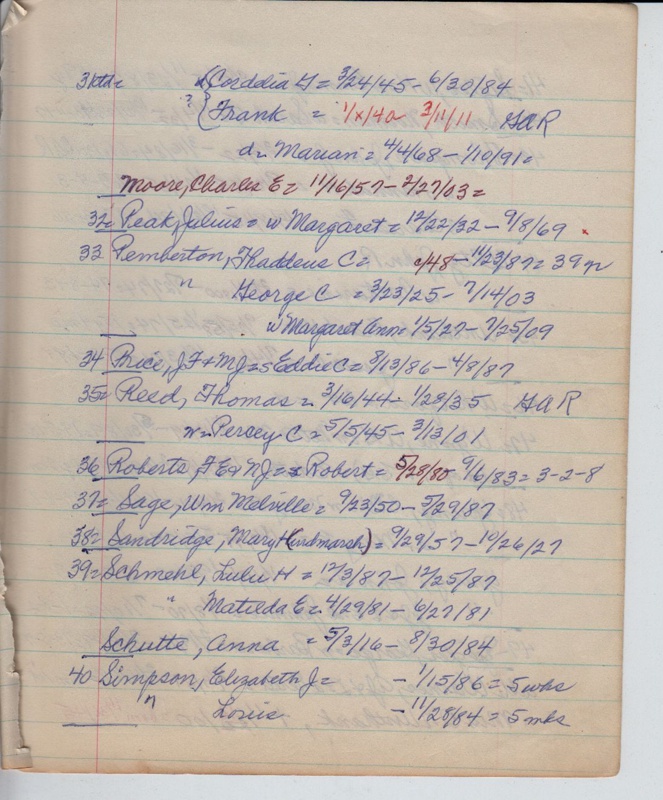 31ctd= w Corddia G = 3/24/45 - 6/30/84
? { Frank = 1/x/40 3/11/11 GAR
d = Marian = 4/4/68 - 1/10/91 =
Moore, Charles E = 11/16/57 - 2/27/03 =
32 = Peak, Julius = w Margaret = 12/22/32 - 9/8/69 x
33 Pemberton, Thaddeus C = c/48 - 11/23/87 = 39 n
" George C = 3/23/25 - 7/14/03
w Margaret Ann = 1/5/27 - 7/25/09
34 Price, J F + M J = s Eddie C = 8/13/86 - 4/8/87
35 = Reed, Thomas = 3/16/44 - 1/28/35 GAR
w = Percey C = 5/5/45 - 3/13/01
36 Roberts, F E + N J = s Robert = 5/28/80 9/6/83 = 3-2-8
37 = Sage, Wm Melville = 9/23/50 - 5/29/87
38 = Sandridge, Mary H(indmarsh) = 9/29/57 - 10/26/27
39 = Schmehl, Lulu H = 12/3/87 - 12/25/87
" Matilda E = 4/29/81 - 6/27/81
Schutte, Anna = 5/3/16 - 8/30/84
40 Simpson, Elizabeth J = - 1/15/86 = 5 wks
" Louis - 11/28/84 = 5 mks